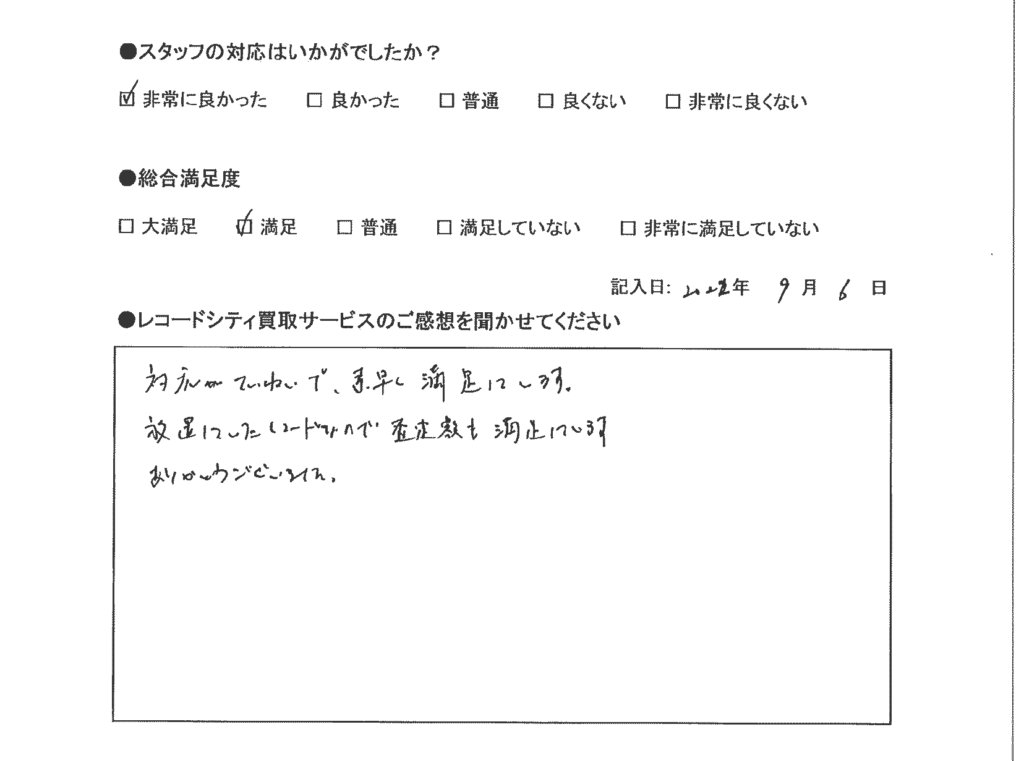 ●スタッフの対応はいかがでしたか？
☑ 非常に良かった □ 良かった □ 普通 □ 良くない □ 非常に良くない
●総合満足度
□ 大満足 ☑ 満足 □ 普通 □ 満足していない □ 非常に満足していない
記入日: 2022年 9月 6日
●レコードシティ買取サービスのご感想を聞かせてください
対応がていねいで、素早く満足しています。
放置していたレコードなので査定額も満足しています
ありがとうございました。